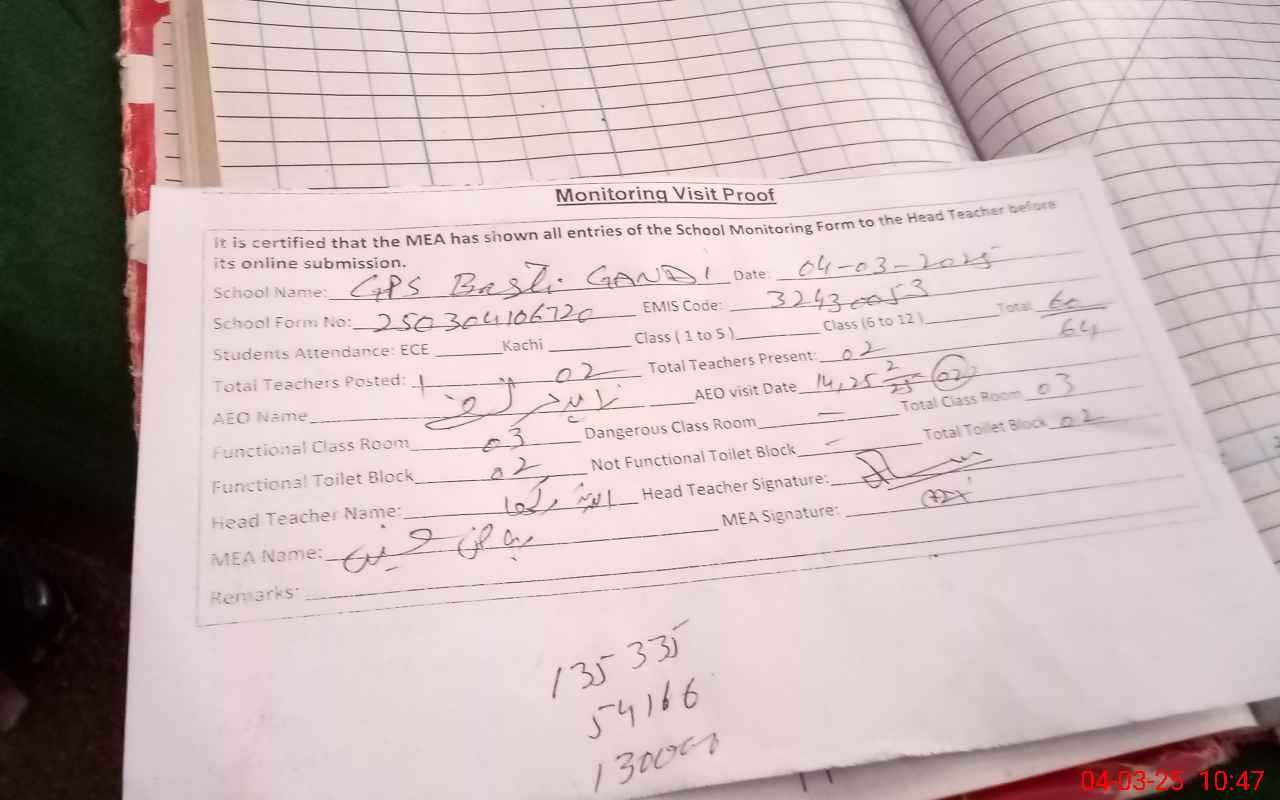 Monitoring Visit Proof
It is certified that the MEA has shown all entries of the School Monitoring Form to the Head Teacher before
its online submission.
School Name: GPS Basti GANDI Date: 04-03-2025
School Form No: 250304106720 EMIS Code: 32430053
Students Attendance: ECE Kachi Class ( 1 to 5 ) Class (6 to 12 ) Total 60/64
Total Teachers Posted: 02 Total Teachers Present: 02
AEO Name AEO visit Date 14,25 2/25 02
Functional Class Room 03 Dangerous Class Room — Total Class Room 03
Functional Toilet Block 02 Not Functional Toilet Block — Total Toilet Block 02
Head Teacher Name: Head Teacher Signature:
MEA Name: MEA Signature:
Remarks:
135335
54166
130000
04-03-25 10:47